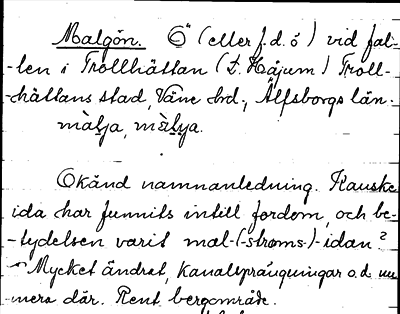 Malgön. Ö (eller f.d. ö) vid fal-
-len i Trollhättan (t. Håjum) Troll-
-hättans stad, Väne hrd., Älfsborgs län.
màlja, màlya.
Okänd namnanledning. Kanske
ida har funnits intill fordom, och be-
-tydelsen varit mal-(-ströms-)-idan?
Mycket ändrat, kanalsprängningar o.d. nu-
mera där. Rent bergområde.